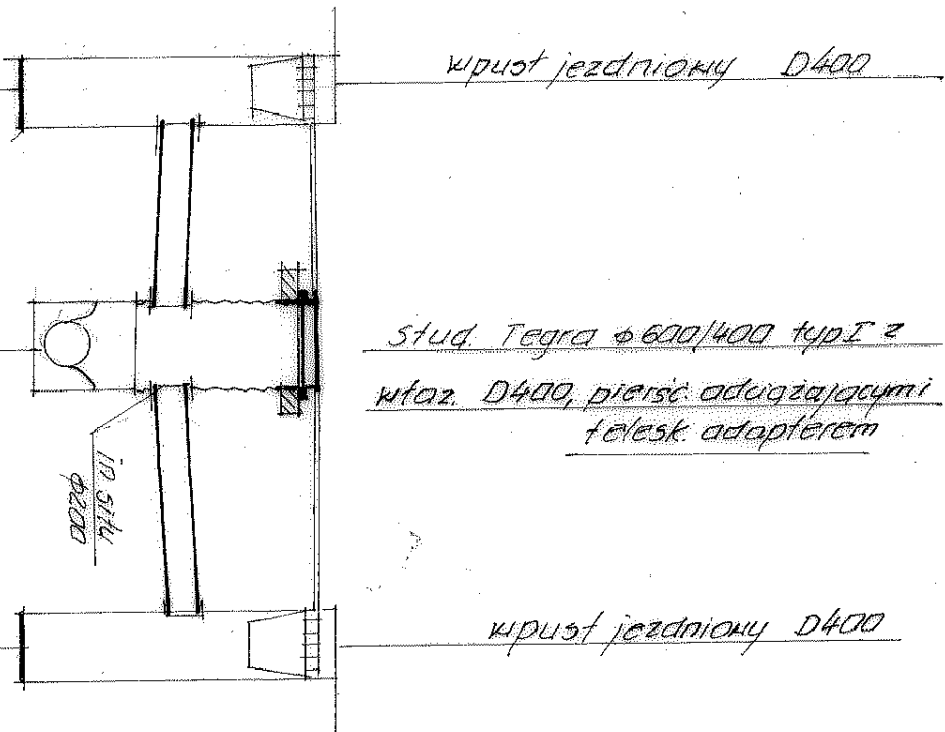 wpust jezdniowy D400
stud. Tegra φ600/400 typ I z
właz. D400, pierśc. odciążającymi
telesk. adapterem
in situ
φ200
wpust jezdniowy D400